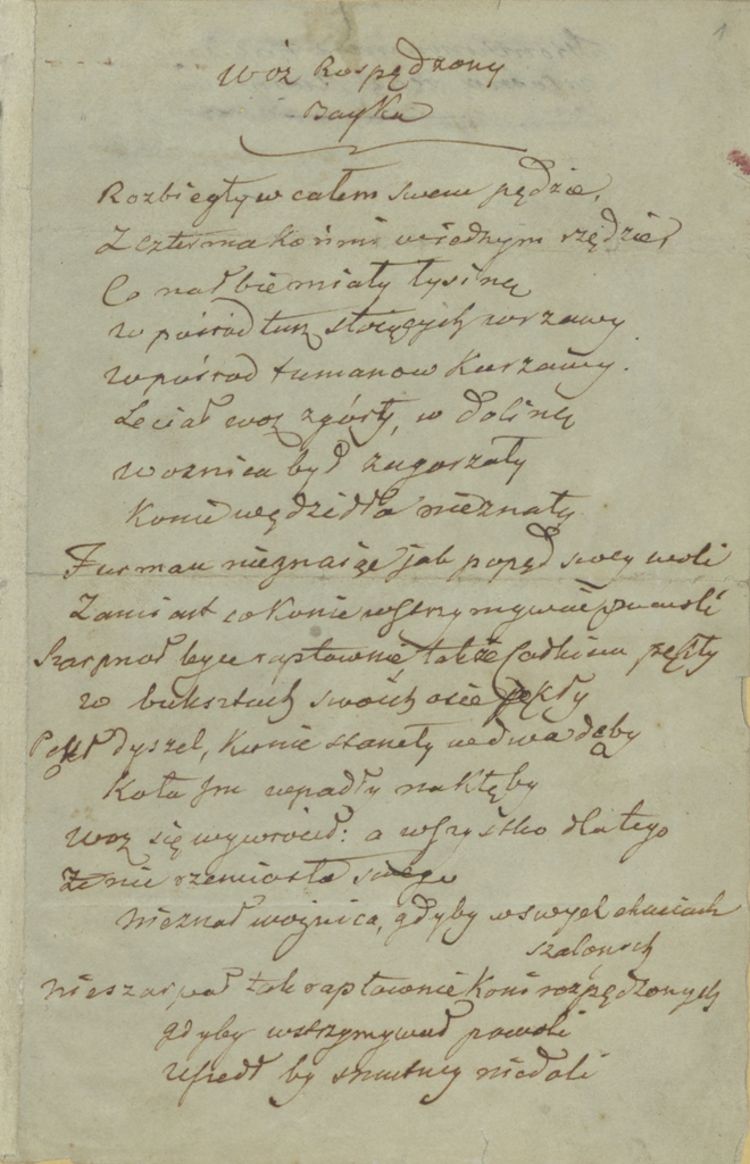 1
Wóz Rospędzony
Bayka
Rozbiegły w całem swem pędzie,
Z czterma końmi w jednym rzędzie,
Co na łbie miały łysinę
W pośród tłuszczych wrzawy
W pośrod tumanow kurzawy.
Leciał woz z góry, w dolinę
Woznica był zagorzały
Konie wędzidła nieznały
Furman nieznaiąc jak popęd swey woli
Zamiast co konie wstrzymywać powoli
Szarpnoł leyce raptownie, tak że pękły
W buksztach swoich osie pękły
Pękł dyszel, konie stanęły w dwa dęby
Koła im wpadły na kłęby
Woz się wywrócił: a wszystko dla tego
Że nie rzemiosła swego
Nieznał woźnica, gdyby w swych chęciach
szalonych
Nieszarpał tak raptownie koni rozpędzonych
gdyby wstrzymywał powoli
Uszedł by smutney niedoli